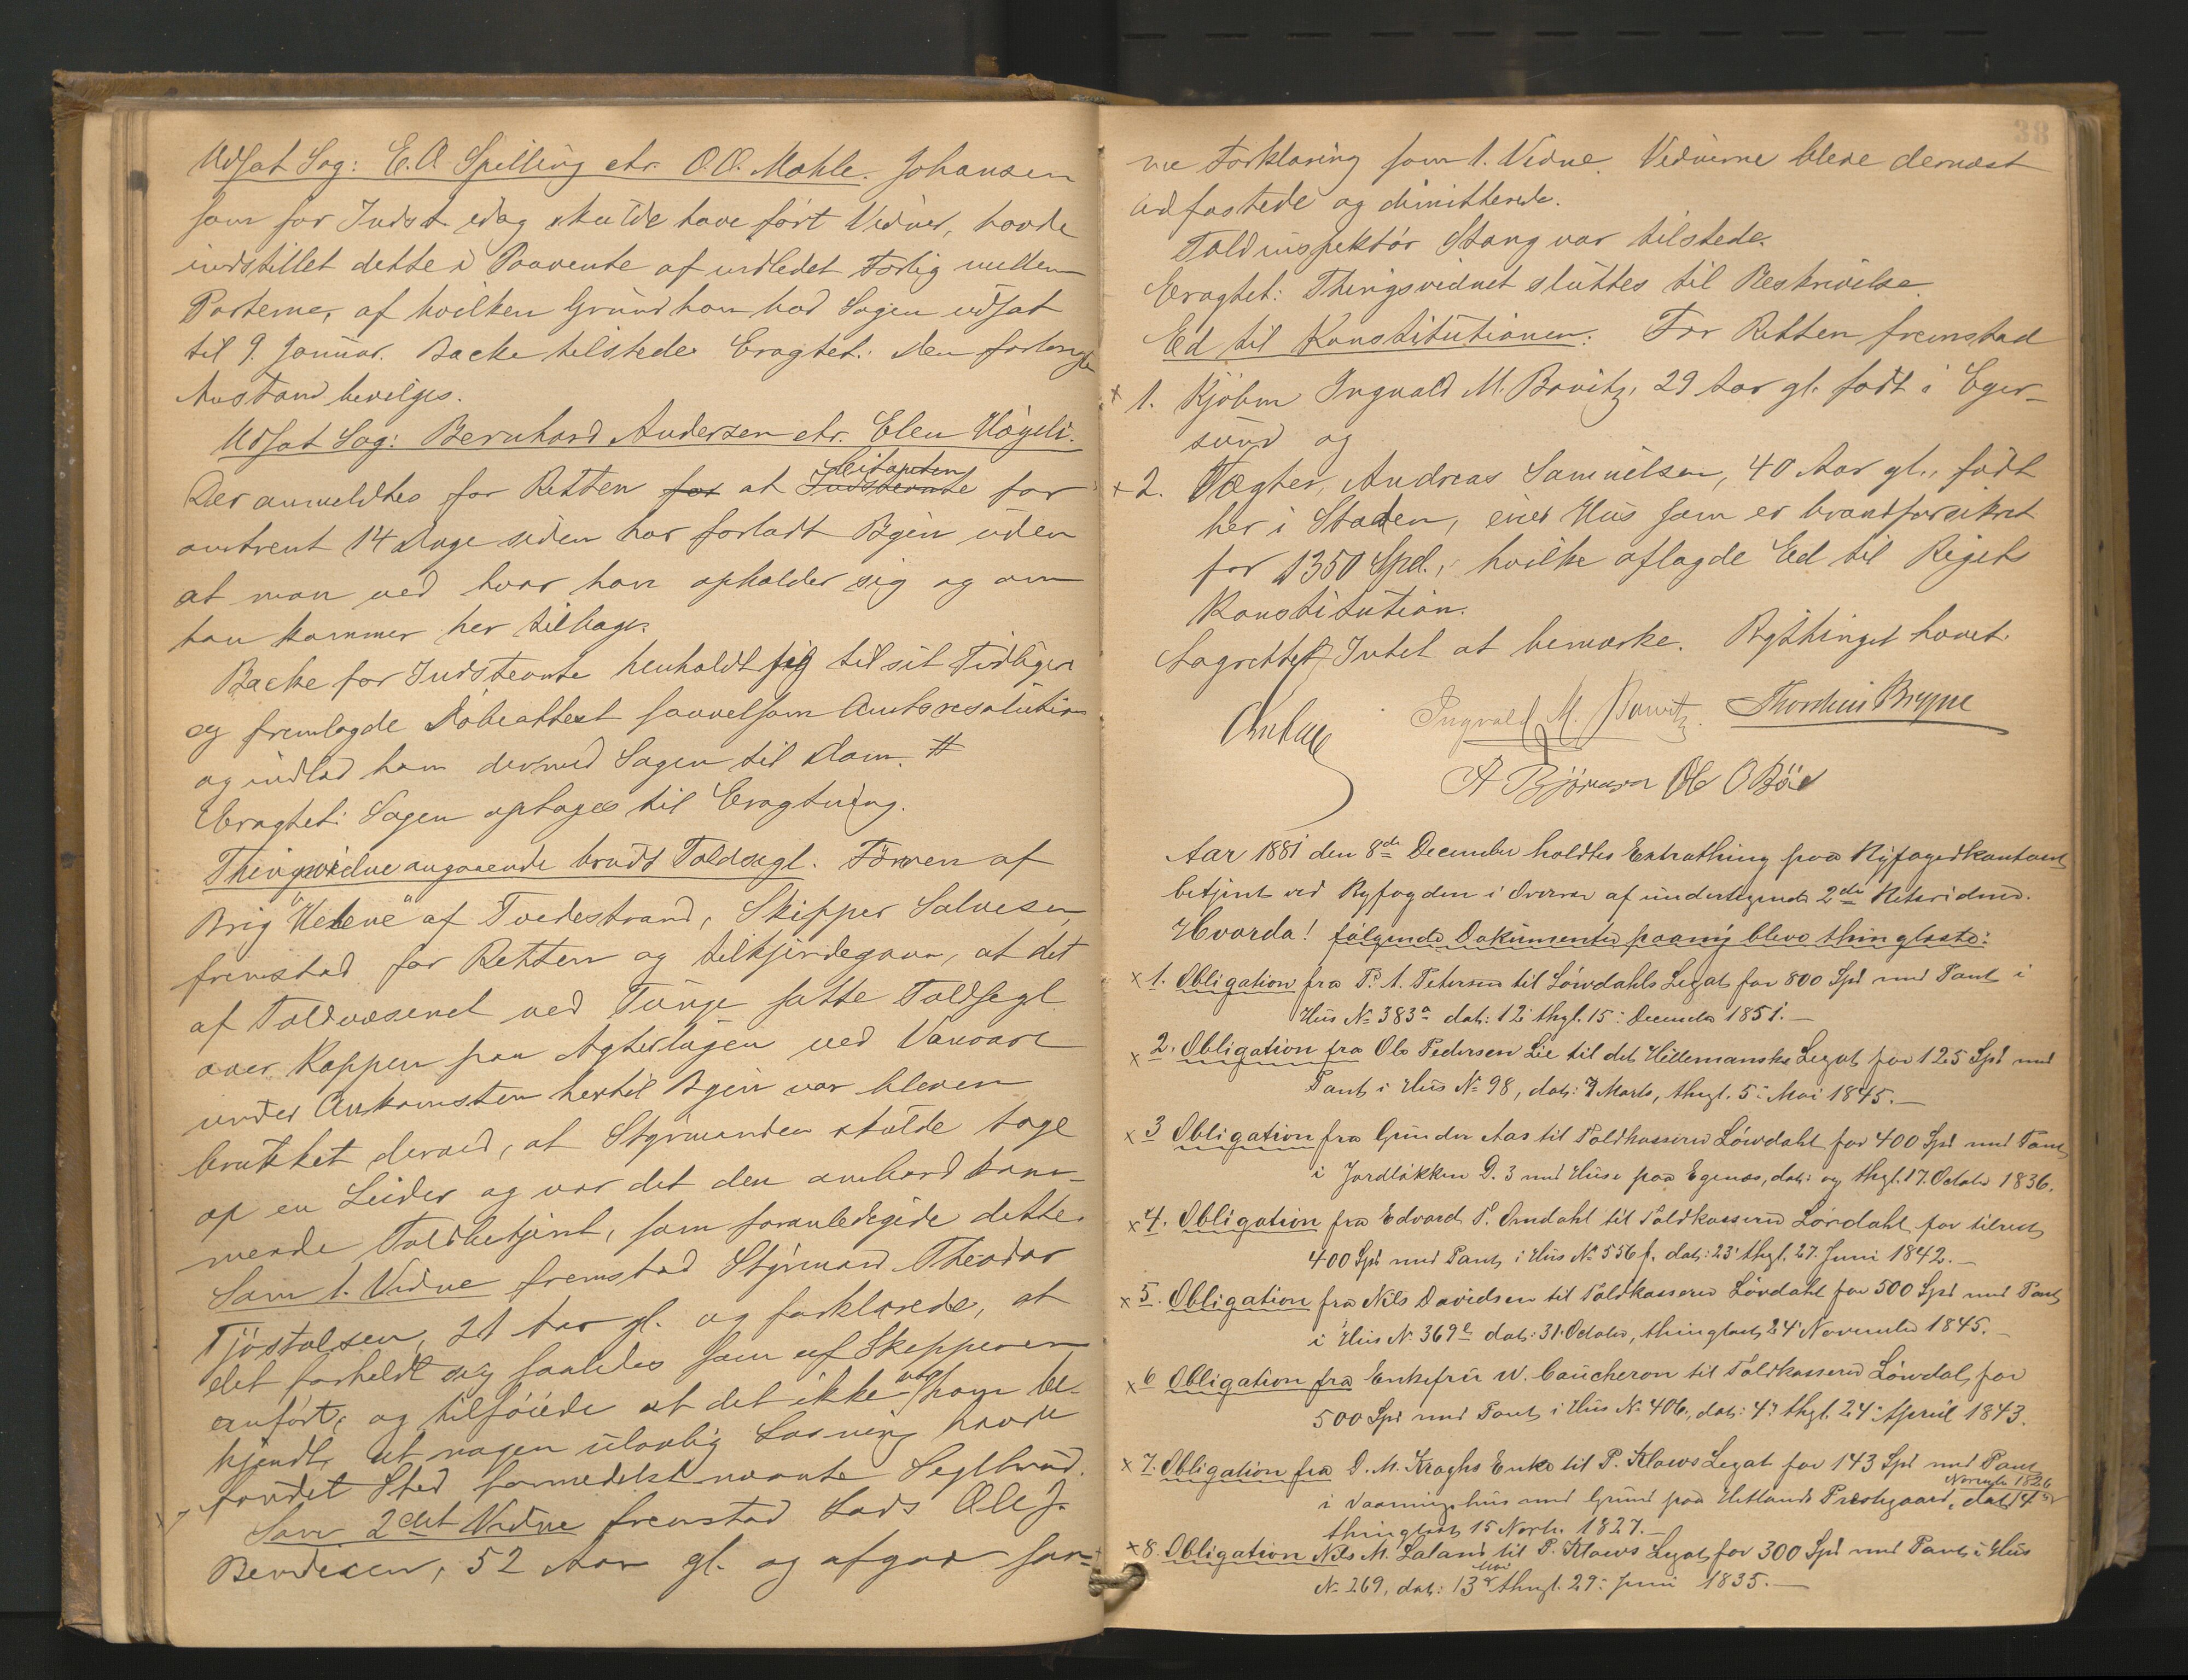 Udsat Sag: E. A Spilling ctr. O. O. Mohle. Johansen
som for Indst. idag skulde have ført Vidner, havde
indstillet dette i Paavente af indledet Forlig mellem
Parterne, af hvilken Grund han bad Sagen udsat
til 9. Januar. Backe tilstede. Eragtet: Den forlangte
Anstand bevilges.
Udsat Sag: Bernhard Andersen ctr. Elen Høgeli.
Der anmeldtes for Retten for at Indstevnte Citanten for
omtrent 14 Dage siden har forladt Byen uden
at man ved hvor han opholder sig og om
han kommer her tilbage.
Backe for Indstevnte henholdt sig til sit Tidligere
og fremlagde Døbeattest saavelsom Amtsresolution
og indlod han dermed Sagen til Dom. #
Eragtet: Sagen optages til Eragtning.
Thingsvidne angaaende brudt Toldsegl. Føreren af
Brig "Helene" af Tvedestrand, Skipper Salvesen,
fremstod for Retten og tilkjendegav, at det
af Toldvæsenet ved Tunge satte Toldsegl
over Kappen paa Agterlugen ved Vanvare
under Ankomsten hertil Byen var bleven
brukket derved, at Styrmanden skulde tage
op en Leider og var det den ombord kom-
mende Toldbetjent, som foranledigede dette.
Som 1. Vidne fremstod Styrmand Theodor
Tjøstolsen, 21 Aar gl. og forklarede, at
det forholdt sig saaledes som af Skipperen
anført, og tilføiede at det ikke var ham be-
kjendt, at nogen ulovlig Losning havde
fundet Sted formedelst nævnte Seglbrud.
Som 2det Vidne fremstod Lods Ole J.
Bendixen, 52 Aar gl. og afgav sam-
38
me Forklaring som 1. Vidne. Vidnerne bleve dernæst
edfæstede og dimitterede.
Toldinspektør Stang var tilstede.
Eragtet: Thingsvidnet sluttes til Beskrivelse.
Ed til Konstitutionen: For Retten fremstod
x 1. Kjøbm Ingvald M. Bowitz, 29 Aar gl. født i Eger-
sund og
x 2. Vægter, Andreas Samuelsen, 40 Aar gl., født
her i Staden, eier Hus som er brandforsikret
for 1350 Spd., hvilke aflagde Ed til Rigets
Konstitution.
Lagrettet Intet at bemærke. Bythinget hævet.
Ingvald M. Bowitz. Thorkin Bryne
A Bjørnsen Ole O Bøe
Aar 1881 den 8de December holdtes Extrathing paa Byfogedkontoret
betjent ved Byfogden i Overvær af undertegnede 2de Retsvidner.
Hvorda! følgende Dokumenter paany bleve thinglæste:
x 1. Obligation fra P. A. Petersen til Løwdahls Legat for 800 Spd med Pant i
Hus No 383a dat: 12 thgl. 15: December 1851. —
x 2. Obligation fra Ole Pedersen Lie til det Hillemanske Legat for 125 Spd med
Pant i Hus No 98, dat: 7 Marts, thgl. 5: Mai 1845. —
x 3 Obligation fra Gunder Aas til Toldkasserer Løwdahl for 400 Spd med Pant
i Jordløkken D. 3 med Huse paa Egenæs, dat: og thgl. 17. October 1836.
x 4. Obligation fra Edvard P. Omdahl til Toldkasserer Løvdahl for tilrest
400 Spd med Pant i Hus No 556 f. dat: 23 thgl. 27. Juni 1842. —
x 5. Obligation fra Nils Davidsen til Toldkasserer Løvdahl for 500 Spd med Pant
i Hus No 369 dat: 31. October, thinglæst 24 November 1845. —
x 6 Obligation fra Enkefru W. Caucheron til Toldkasserer Løwdal, for
500 Spd med Pant i Hus No 406, dat: 4: thgl. 24: April 1843.
x 7. Obligation fra D. M. Kraghs Enke til P. Klows Legat for 143 Spd med Pant
i Vaaningshus med Grund paa Hetlands Præstegaard, dat 14 Novemb. 1826
thinglæst 15 Novb. 1827. —
x 8. Obligation Nils M. Laland til P. Klows Legat for 300 Spd med Pant i Hus
No 269, dat: 13 Mai thgl. 29: Juni 1835. —